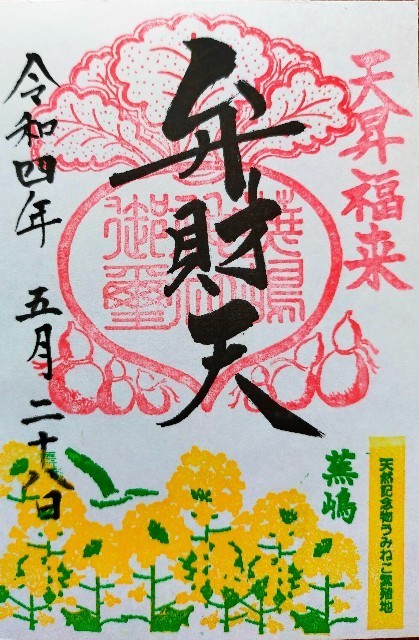 天昇福来
弁財天
蕪嶋
御璽
令和四年 五月 二十八日
蕪嶋
天然記念物うみねこ繁殖地